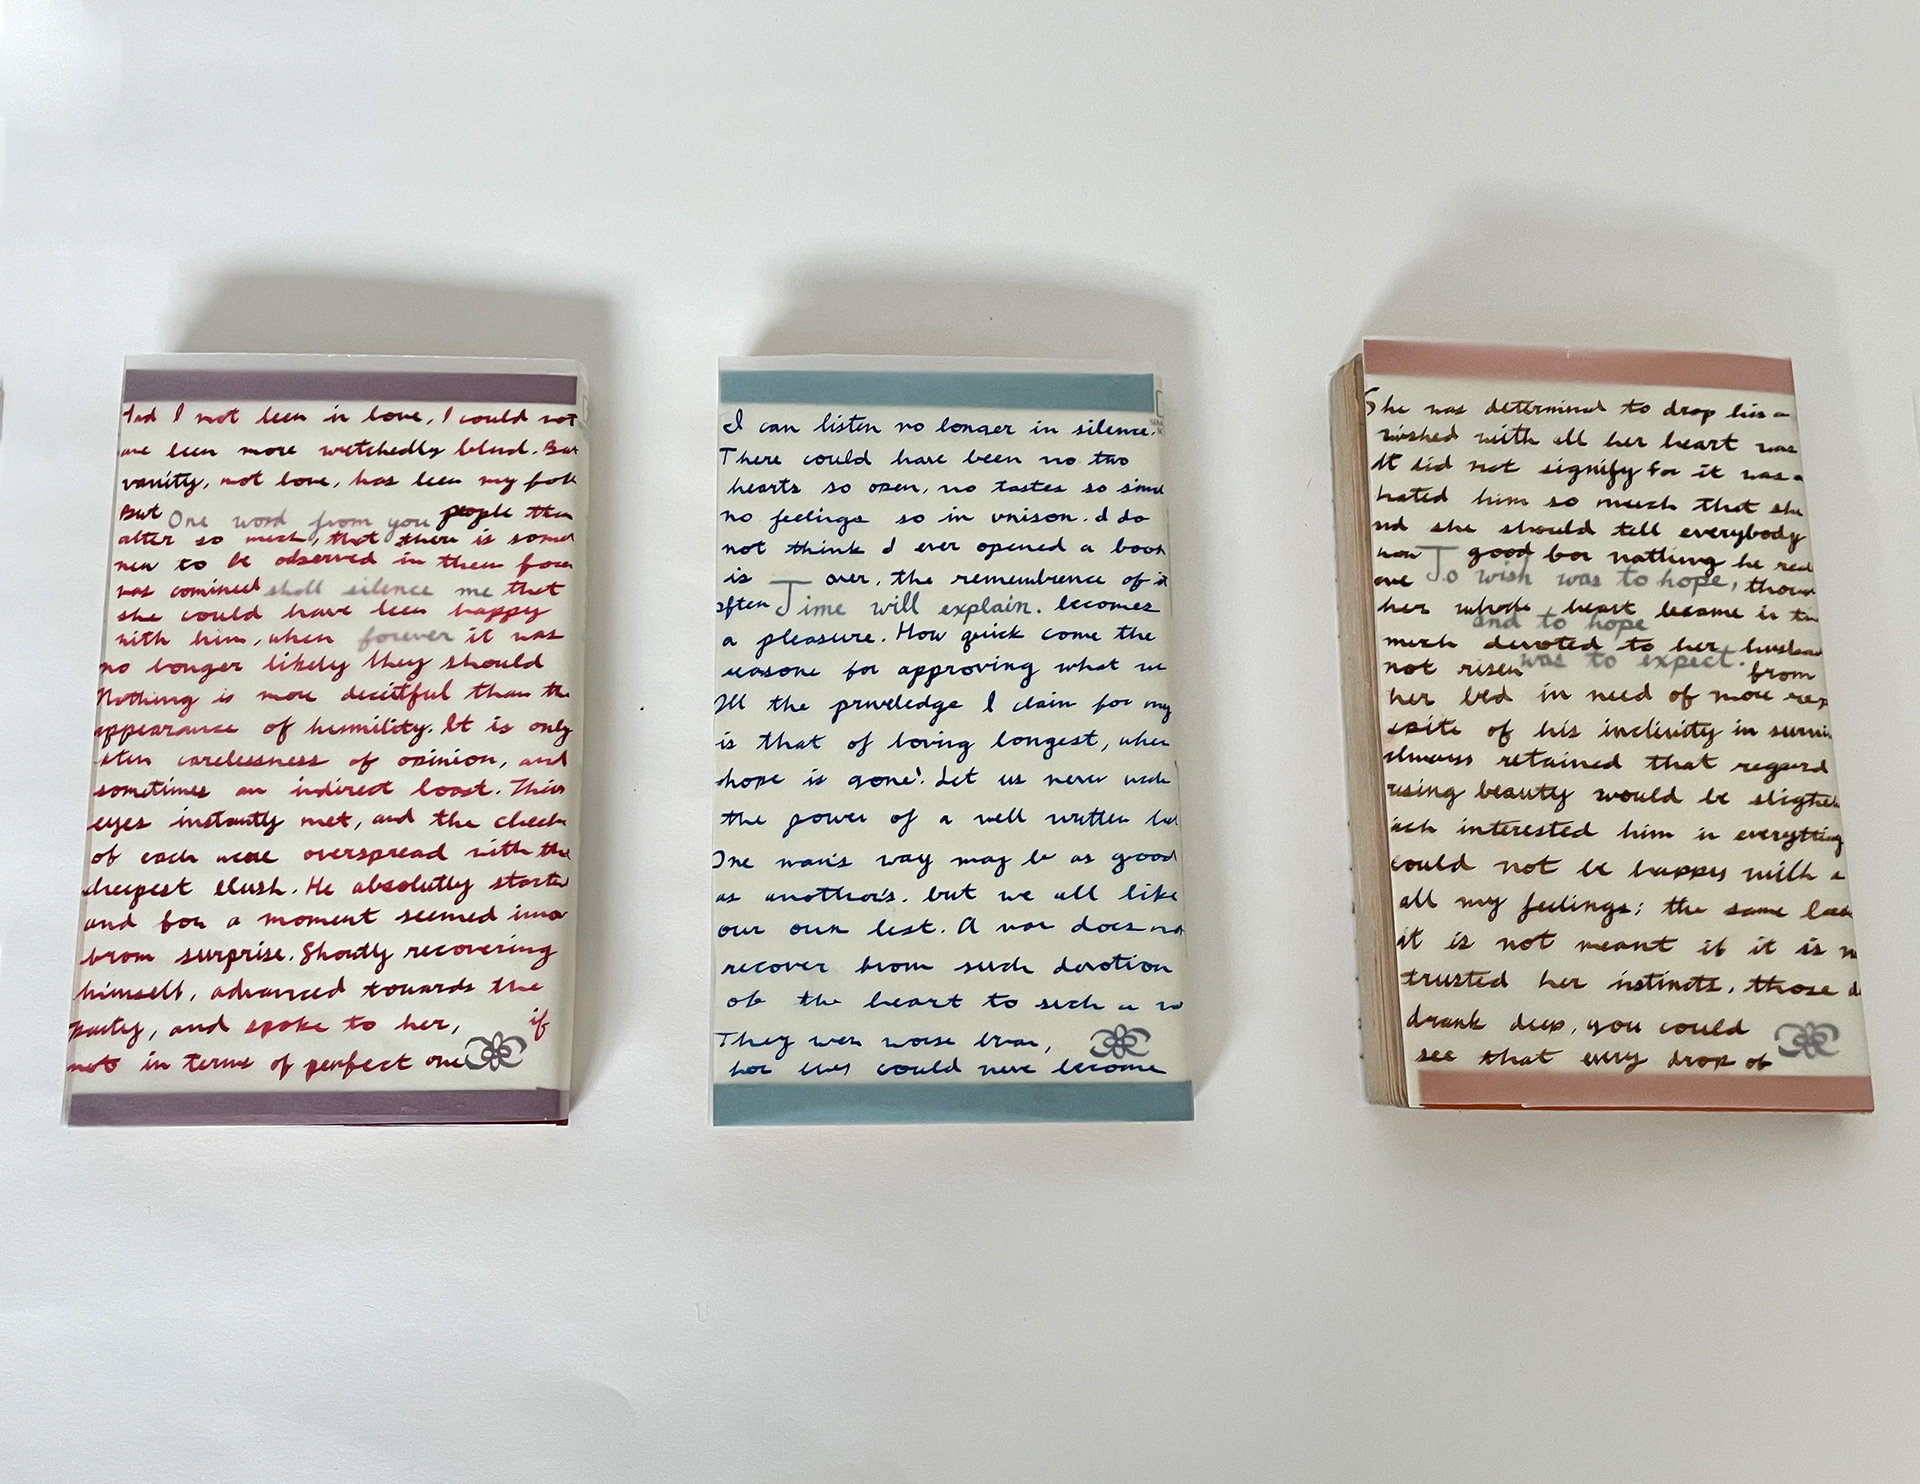 Had I not been in love, I could not
been more wretchedly blind. But
vanity, not love, has been my
But One word from you people than
alter so much, that there is some
new to be observed in them
was convinced shall silence me that
she could have been happy
with him, when forever it was
no longer likely they should
Nothing is more deceitful than the
appearance of humility. It is only
often carelessness of opinion, and
sometimes an indirect boast. Their
eyes instantly met, and the cheek
of each were overspread with the
deepest blush. He absolutly started
and for a moment seemed
from surprise. Shortly recovering
himself, advanced towards the
party, and spoke to her, if
not in terms of perfect one
I can listen no longer in silence.
There could have been no two
hearts so open, no tastes so
no feelings so in unison. I do
not think I ever opened a book
is over, the remembrence of it
often Time will explain. becomes
a pleasure. How quick come the
reasons for approving what we
All the priveledge I claim for my
is that of loving longest, when
hope is gone! Let us never
the power of a well written
One man's way may be as good
as another's, but we all like
our own best. A man does not
recover from such devotion
of the heart to such a
They were worse than,
for they could never become
She was determined to drop his
wished with all her heart was
It did not signify for it was
hated him so much that she
and she should tell everybody
how good for nothing he
To wish was to hope,
her whole heart became in
and to hope
much devoted to her husband
not risen was to expect. from
her bed in need of more
spite of his in
always retained that regard
rising beauty would be
interested him in everything
could not be happy with a
all my feelings; the same
it is not meant if it is
trusted her instincts, those
drank deep, you could
see that every drop of